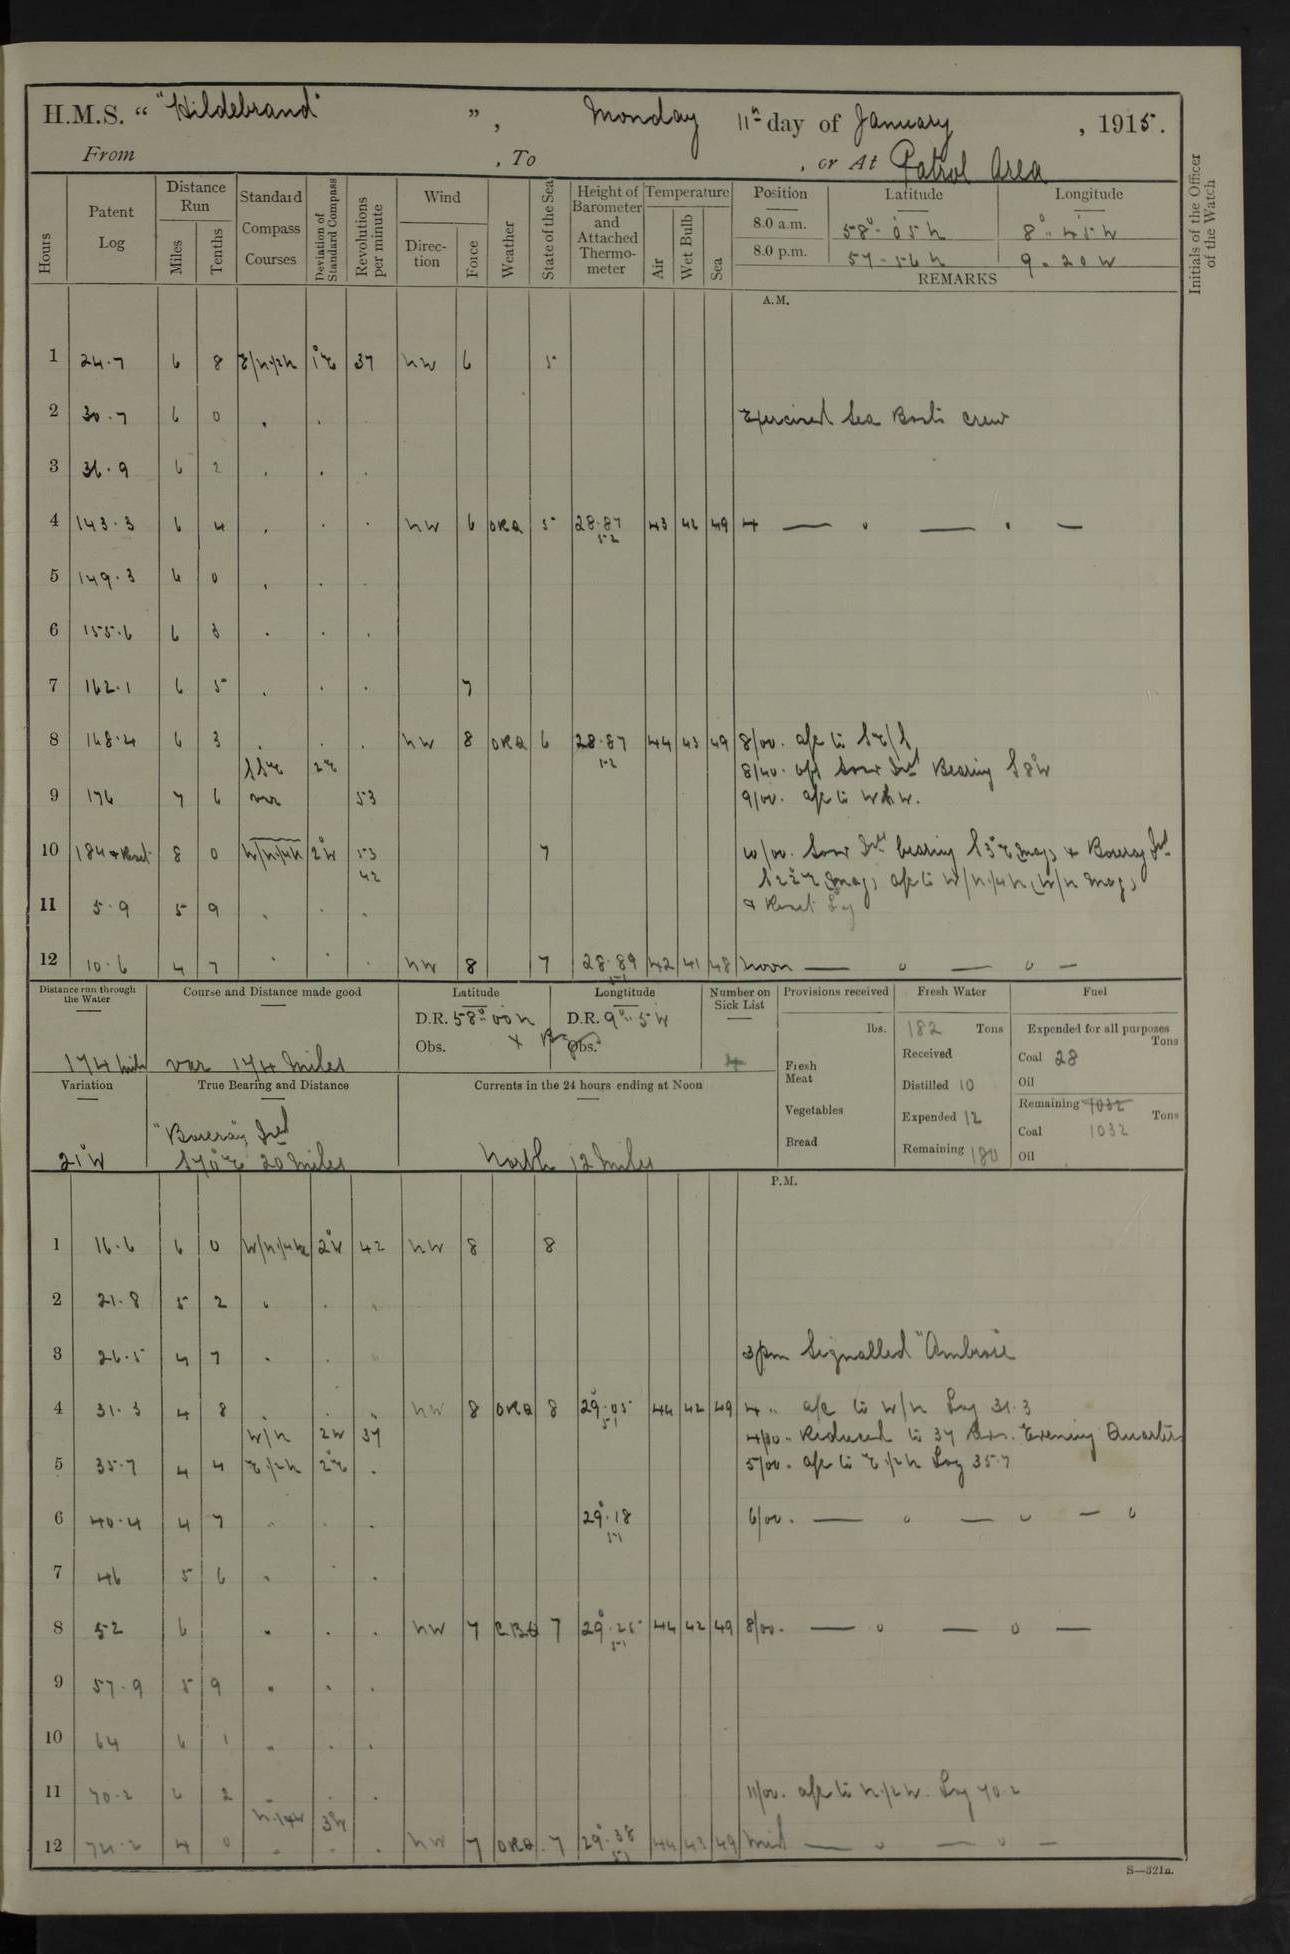 H.M.S. “ "Hildebrand" ”, Monday 11th day of January, 1915.
From , To , or At Patrol Area
Hours
Patent Log
Distance Run
Miles
Tenths
Standard Compass Courses
Deviation of Standard Compass
Revolutions per minute
Wind
Direction
Force
Weather
State of the Sea
Height of Barometer and Attached Thermometer
Temperature
Air
Wet Bulb
Sea
Position Latitude Longitude
8.0 a.m. 58°· 05 N 8°·· 45 W
8.0 p.m. 57 - 56 N 9 .. 20 W
REMARKS
Initials of the Officer of the Watch
A.M.
1 24·7 6 8 1°E 37 NW 6 5
2 30·7 6 0 Exercised Sea Boats crew
3 36·9 6 2
4 143·3 6 4 NW 6 ORQ 5 28·87 52 43 42 49 4
5 149·3 6 0
6 155·6 6 3
7 162·1 6 5 7
8 168·4 6 3 NW 8 ORQ 6 28·87 52 44 43 49 8/00. a/c to SE/S
SSE 2E 8/40. Bearing S 8°W
9 176 7 6 var 53 9/00. a/c to
10 184 & Reset 8 0 W/N½N 2°W 53 7 10/00. bearing S 3°E mag, & Boreray Isd
42 S 22°E mag, a/c to W/N½N (W/N mag)
11 5·9 5 9 & Reset Log
12 10·6 4 7 NW 8 7 28·89 51 42 41 48 Noon
Distance run through the Water
174 Miles
Course and Distance made good
var 174 Miles
Latitude
D.R. 58° 00 N
Obs.
Longtitude
D.R. 9°·· 5 W
Obs.
Number on Sick List
4
Provisions received
lbs.
Fresh Meat
Vegetables
Bread
Fresh Water
182 Tons
Received
Distilled 10
Expended 12
Remaining 180
Fuel
Expended for all purposes
Tons
Coal 28
Oil
Remaining 1032 Tons
Coal 1032
Oil
Variation
21°W
True Bearing and Distance
"Boreray" Isd
S70°E 20 Miles
Currents in the 24 hours ending at Noon
North 12 Miles
P.M.
1 16·6 6 0 2°W 42 NW 8 8
2 21·8 5 2
3 26·5 4 7 3pm Signalled "Ambrose"
4 31·3 4 8 NW 8 ORQ 8 29·05 51 44 42 49 4 .. a/c to W/N Log 31·3
W/N 2W 37 4/30 .. Reduced to 37 Revs. Evening Quarters
5 35·7 4 4 E½N 2°E 5/00. a/c to E½N Log 35·7
6 40·4 4 7 29·18 51 6/00.
7 46 5 6
8 52 6 NW 7 7 29·25 51 44 42 49 8/00.
9 57·9 5 9
10 64 6 1
11 70·2 6 2 11/00. a/c to N½W. Log 70·2
N½W 3W
12 74·2 4 0 NW 7 ORQ 7 29·38 51 44 43 49 Mid
S—321a.